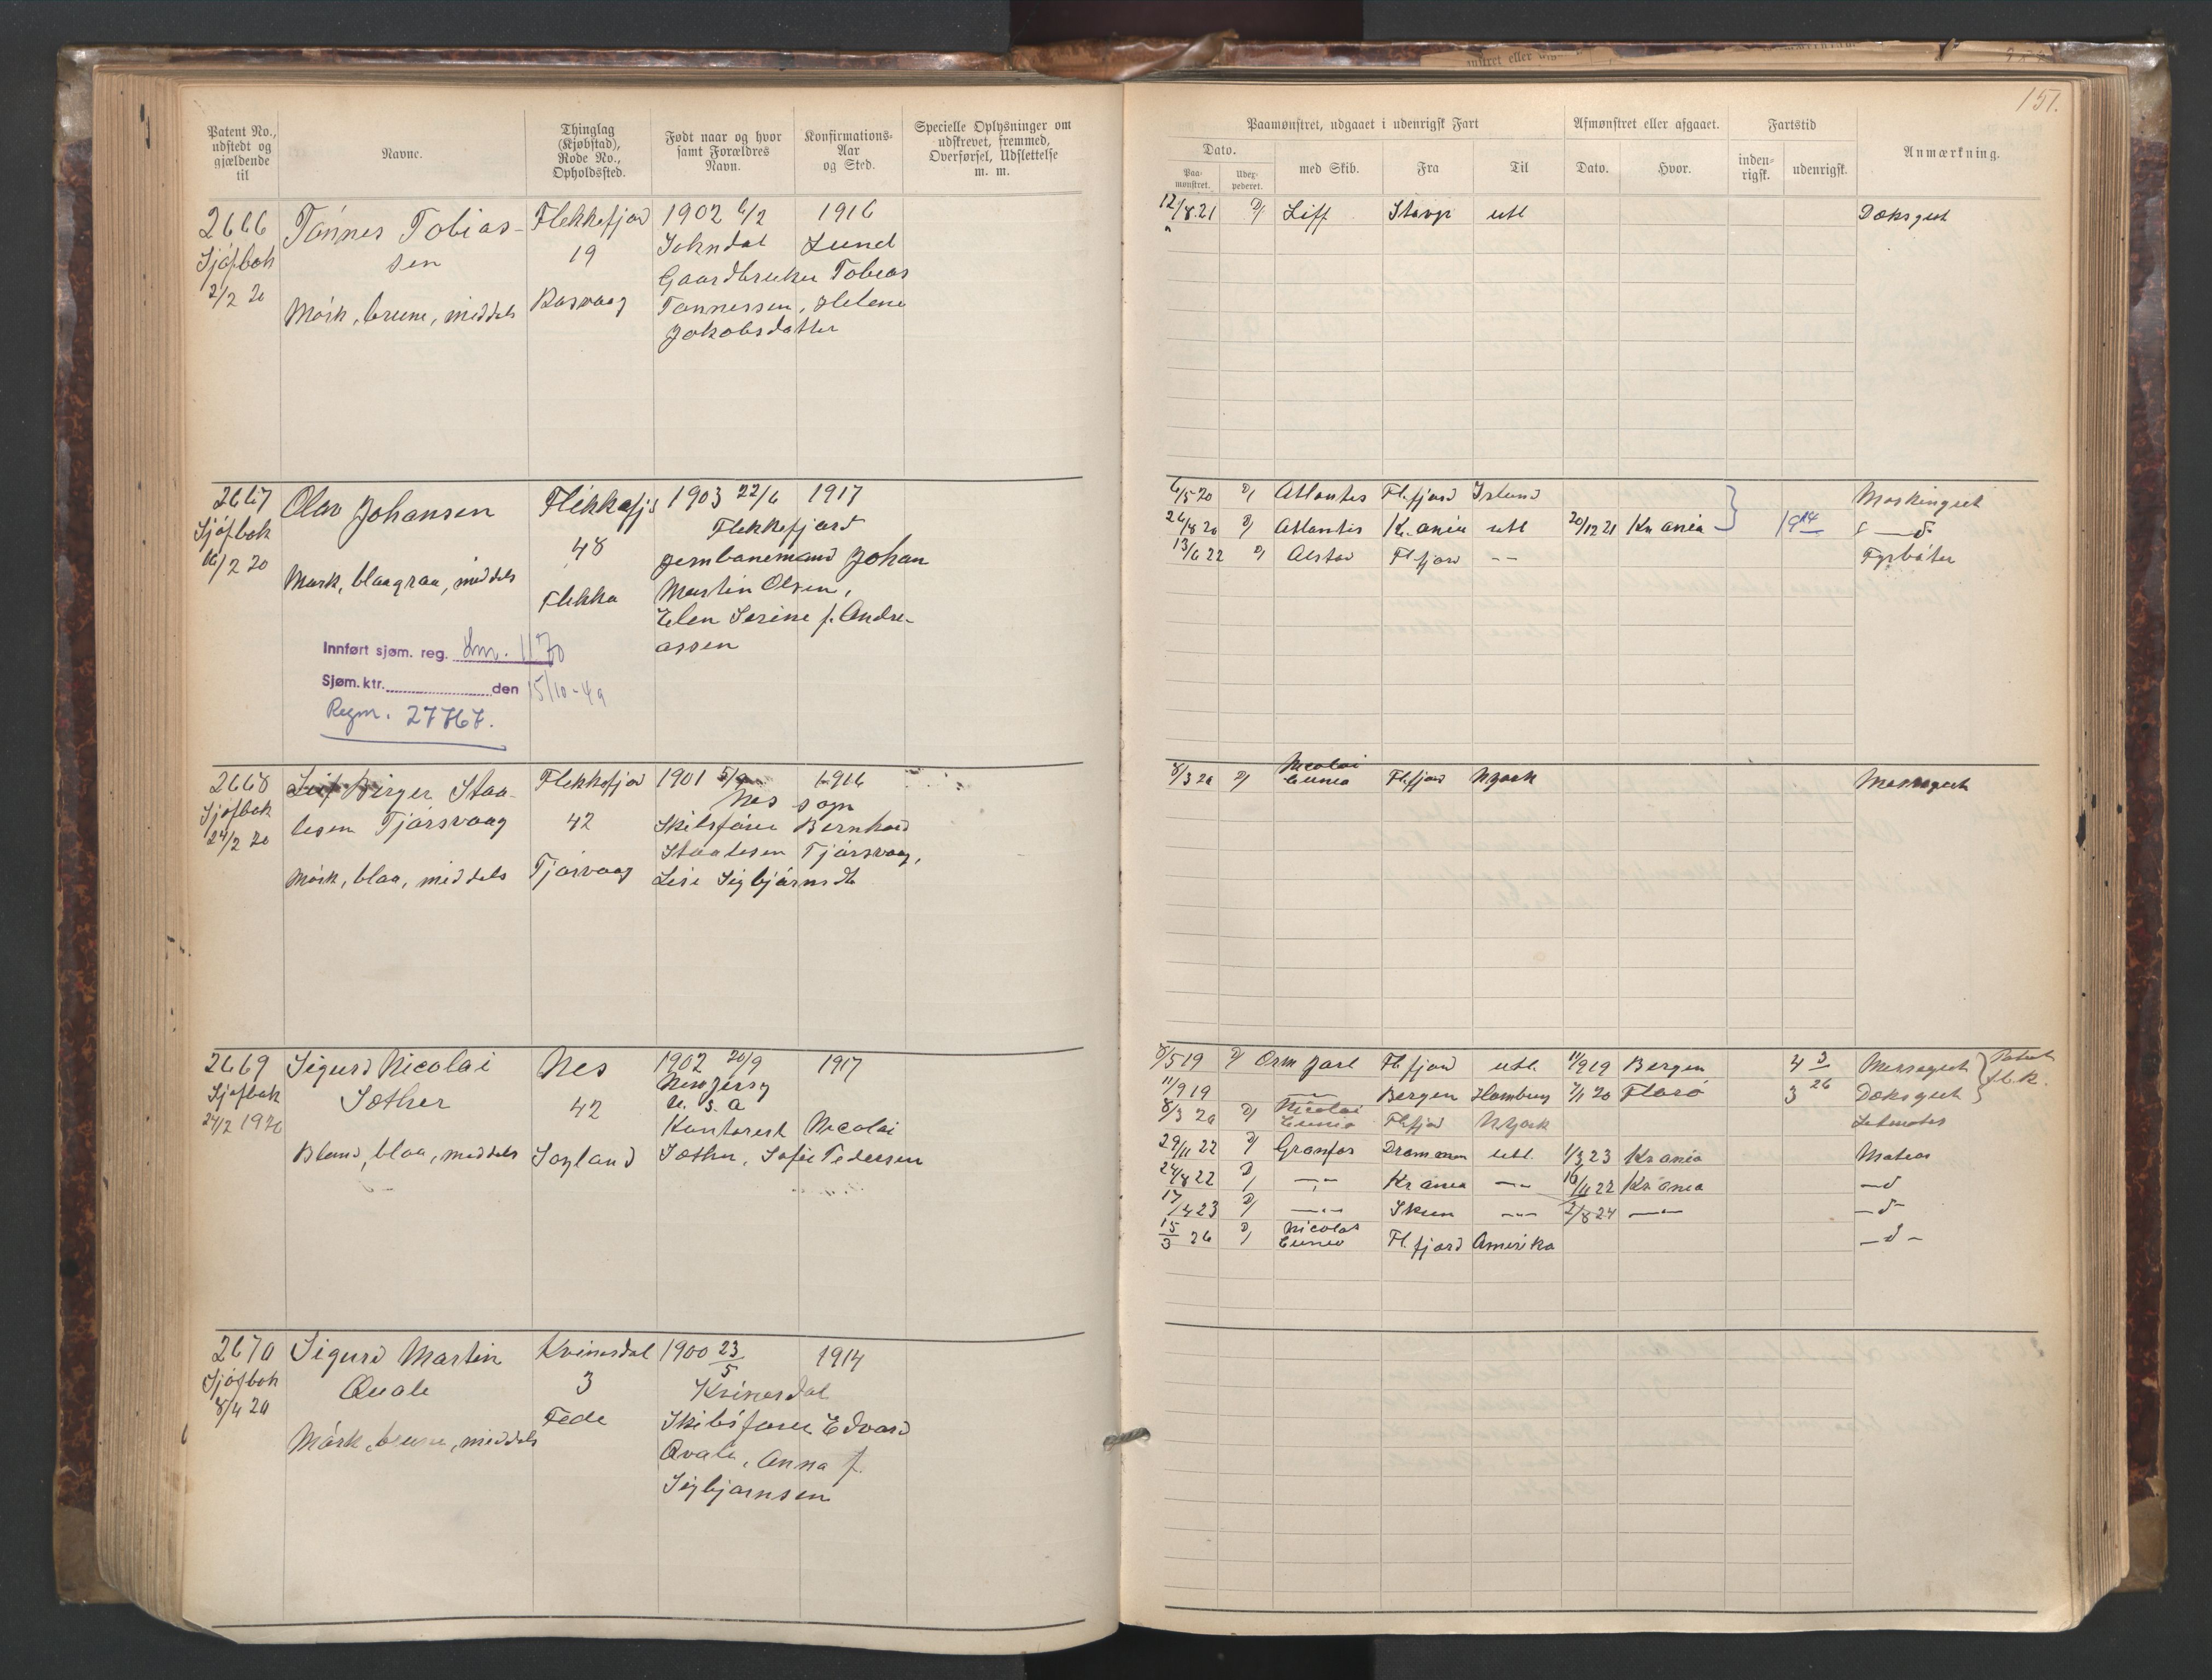 151.
Patent No., udstedt og gjældende til
Navne.
Thinglag (Kjøbstad), Rode No., Opholdssted.
Født naar og hvor samt Forældres Navn.
Konfirmations-Aar og Sted.
Specielle Oplysninger om udskrevet, fremmed, Overførsel, Udslettelse m. m.
Paamønstret, udgaaet i udenrigsk Fart
Afmønstret eller afgaaet.
Fartstid
Anmærkning.
Dato.
Paamønstret.
med Skib.
Fra
Til
Dato.
Hvor.
indenrigsk.
udenrigsk.
2666 Tønnes Tobias- Flekkefjord 1902 6/2 1916
Sjøfbok sen 19 Sokndal Lund
2/2 20 Gaardbruker Tobias
Mørk, brune, middels Rasvaag Tønnessen, Helene
Jakobsdatter
12/8.21 D/ Liff Stavgr utl Dæksgut
2667 Olav Johansen Flekkefj 1903 22/6 1917
Sjøfbok 48 Flekkefjord
16/2 20 Jernbanemand Johan
Mørk, blaagraa, middels Flekke Martin Olsen,
Elen Serine f. Andre-
assen
Innført sjøm. reg. Lnr. 1170
Sjøm. ktr. den 15/10-49
Regnr. 27767.
6/5 20 D/ Atlantis Fl.fjord Island Maskingut
26/8 20 D/ Atlantis Kr.ania utl 20/12 21 Kr ania 19 14 — d
13/6 22 D/ Alstad Fl.fjord -- Fyrbøter
2668 Leif Birger Staa- Flekkefjord 1901 5/9 1916
Sjøfbok lesen Tjørsvaag 42 Nes sogn
24/2 20 Skibsfører Bernhard
Staalesen Tjørsvaag,
Mørk, blaa, middels Tjørsvaag Lise Sigbjørnsdt
8/3 20 D/ Nicolai Cuneo Fl.fjord N.york Messegut
2669 Sigurd Nicolai Nes 1902 20/9 1917
Sjøfbok Sæther 42 New Jersy
24/2 1920 U. S. A
Kontorist Nicolai
Blond, blaa, middels Sogland Sæther, Sofie Pedersen
8/5 19 D/ Orm Jarl Fl.fjord utl. 11/9 19 Bergen 4 3 Messegut
11/9 19 -"- Bergen Hamburg 7/1 20 Florø 3 26 Dæksgut
8/3 20 D/ Nicolai Cuneo Fl.fjd N.york Letmatros
29/11 22 D/ Granfos Drammen utl. 1/3 23 Kr ania Matros
24/8 22 D/ -"- Kr ania -"- 16/11 22 Kr ania — d
17/4 23 D/ -"- Skien -"- 2/8 24 -"- — d —
15/3 26 D/ Nicolai Cuneo Fl.fjord Amerika — d —
2670 Sigurd Martin Kvinesdal 1900 23/5 1914
Sjøfbok Qvale 3 Kvinesdal
8/4 20 Fede Skibsfører Edvard
Mørk, brune, middels Qvale, Anna f.
Sigbjørnsen